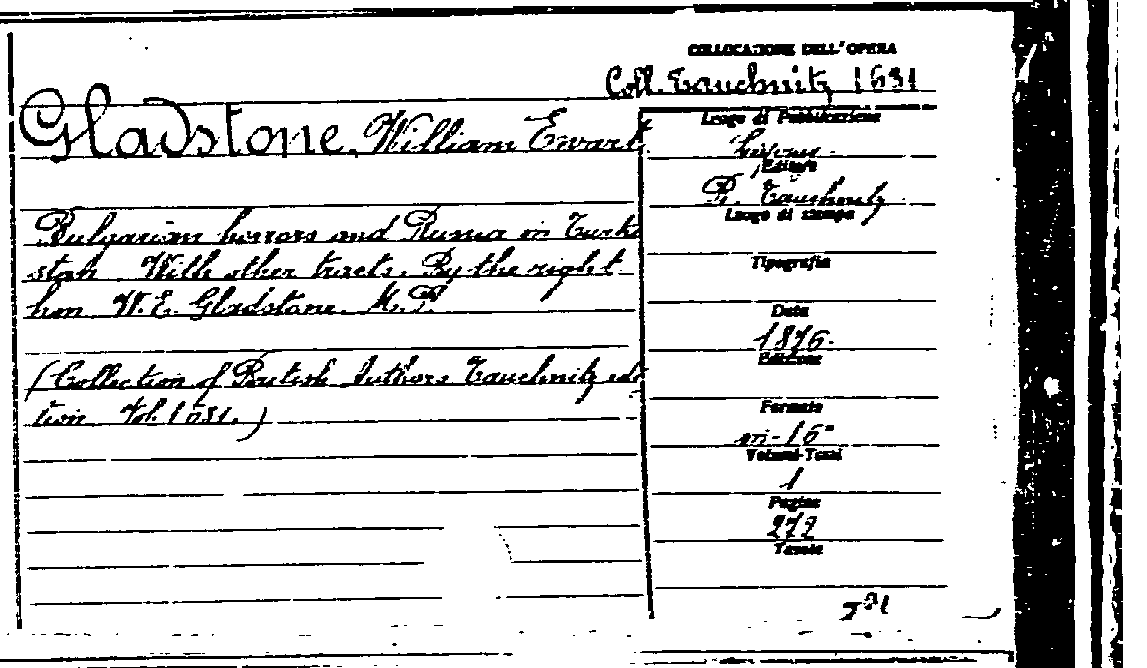 COLLOCAZIONE DELL'OPERA
Coll. Tauchnitz 1631
Gladstone, William Ewart.
Bulgarian horrors and Russia in Turke
stan With other tracts. By the right
hon W. E. Gladstone. M. P.
(Collection of British Authors Tauchnitz edi
tion Vol. 1631.)
Luogo di Pubblicazione
Editore
B. Tauchnitz
Luogo di stampa
Tipografia
Data
1876.
Edizione
Formato
in-16°
Volumi-Tomi
1
Pagine
272
Tavole